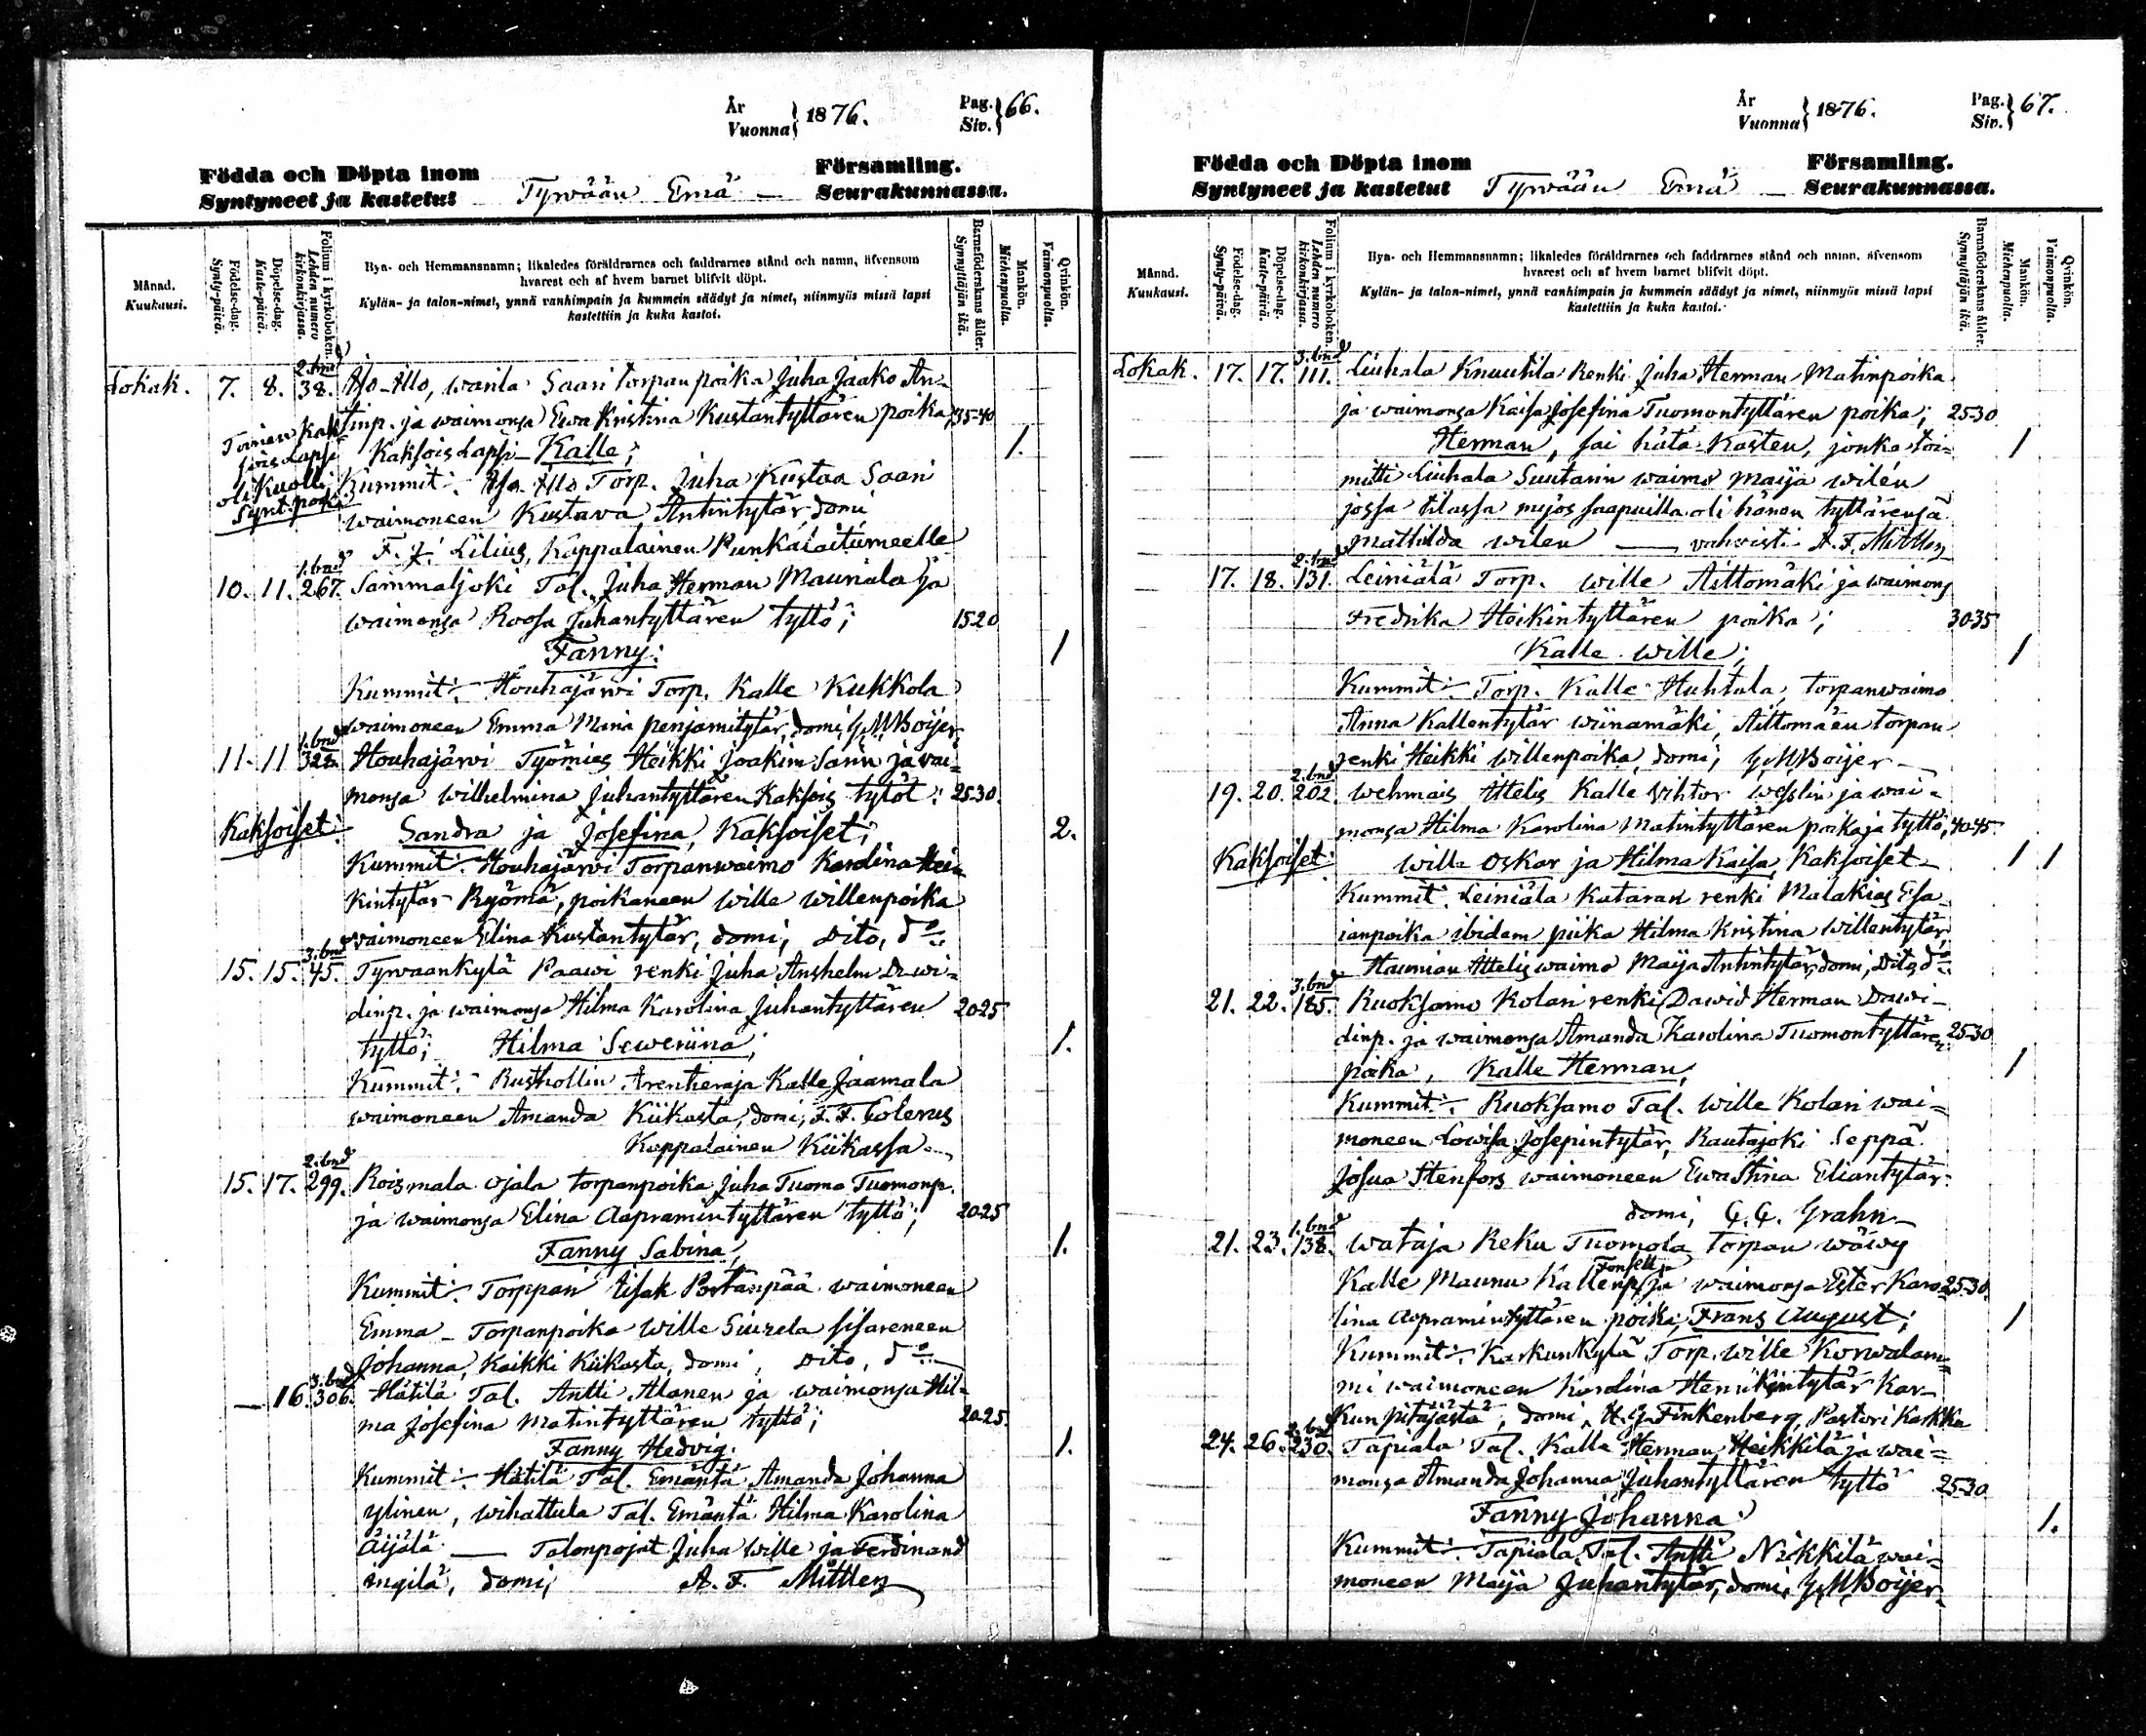 År
Vuonna } 1876.
Pag.
Siv. } 66.
Födda och Döpta inom
Syntyneet ja kastetut
Tyrwään Emä —
Församling.
Seurakunnassa.
Månad.
Kuukausi.
Födelse-dag.
Synty-päivä.
Döpelse-dag.
Kaste-päivä.
Folium i kyrkoboken.
Lehden numero kirkonkirjassa.
Bya- och Hemmansnamn; likaledes föräldrarnes och faddrarnes stånd och namn, äfvensom
hvarest och af hvem barnet blifvit döpt.
Kylän- ja talon-nimet, ynnä vanhimpain ja kummein säädyt ja nimet, niinmyös missä lapsi
kastettiin ja kuka kastoi.
Barnaföderskans ålder.
Synnyttäjän ikä.
Mankön.
Miehenpuolta.
Qvinkön.
Vaimonpuolta.
2. bnd
Lokak. 7. 8. 38. Illo, wanla Saari torpan poika Juha Jaako An-
tinp. ja waimonsa Ewa Kristina Kustantyttären poika, 35-40
Toinen kak
sois Lapsi
oli Kuolli
Synt. poika
Kaksois Lapsi – Kalle; 1.
Kummit: Illo Torp. Juha Kustaa Saari
waimoneen Kustava Antintytär, domi
F. J. Lilius, Kappalainen Punkalaitumeelle
1. bnd
10. 11. 267. Sammaljoki Tal. Juha Herman Maunala ja
waimonsa Roosa Juhantyttären tyttö; 15 20
Fanny: 1
Kummit: Houhajärwi Torp. Kalle Kukkola
waimoneen Emma Maria penjamitytär, domi, G. M. Boijer
1. bnd
11. 11 322. Houhajärwi Työmies Heikki Joakim Sarin ja wai-
monsa Wilhelmina Juhantyttären Kaksois tytöt: 25 30.
Kaksoiset: Sandra ja Josefina, Kaksoiset; 2.
Kummit: Houhajärwi Torpanwaimo Karolina Hei-
kintytär Ryömä, poikaneen Wille Willenpoika
waimoneen Elina Kustantytär, domi, Dito, do
3. bnd
15. 15. 45. Tyrwaankylä Paawi renki Juha Anshelm Dawi-
dinp. ja waimonsa Hilma Karolina Juhantyttären 20 25
tyttö; Hilma Seweriina; 1.
Kummit: Rusthollin Arentieraja Kalle Jaamala
waimoneen Amanda Kiikasta, domi, F. F. Tolerus
Kappalainen Kiikassa
2. bnd
15. 17. 299. Roismala Ojala torpanpoika Juha Tuomo Tuomonp.
ja waimonsa Elina Aapramintyttären tyttö; 20 25
Fanny Sabina, 1.
Kummit: Torppari Iisak Portaanpää waimoneen
Emma – Torpanpoika Wille Siurela sisareneen
Johanna, Kaikki Kiikasta, domi, Dito, do
3. bnd
— 16. 306. Hätilä Tal. Antti Alanen ja waimonsa Hil-
ma Josefina Matintyttären tyttö; 20 25.
Fanny Hedvig. 1.
Kummit: Hätilä Tal. Emäntä Amanda Johanna
Ylinen, Wihattula Tal. Emäntä Hilma Karolina
Äijälä — Talonpojat Juha Wille ja Ferdinand
Ingilä, domi, A. F. Mittler
År
Vuonna } 1876.
Pag.
Siv. } 67.
Födda och Döpta inom
Syntyneet ja kastetut
Tyrwään Emä —
Församling.
Seurakunnassa.
Månad.
Kuukausi.
Födelse-dag.
Synty-päivä.
Döpelse-dag.
Kaste-päivä.
Folium i kyrkoboken.
Lehden numero kirkonkirjassa.
Bya- och Hemmansnamn; likaledes föräldrarnes och faddrarnes stånd och namn, äfvensom
hvarest och af hvem barnet blifvit döpt.
Kylän- ja talon-nimet, ynnä vanhimpain ja kummein säädyt ja nimet, niinmyös missä lapsi
kastettiin ja kuka kastoi.
Barnaföderskans ålder.
Synnyttäjän ikä.
Mankön.
Miehenpuolta.
Qvinkön.
Vaimonpuolta.
3. bnd
Lokak. 17. 17. 111. Liuhala Knuutila Renki Juha Herman Matinpoika
ja waimonsa Kaisa Josefina Tuomontyttären poika; 25 30
Herman, sai hätä Kasten, jonka toi- 1
mitti Liuhala Suutarin waimo Maija Wilén
jossa tilassa myös saapuilla oli hänen tyttärensä
Mathilda Wilen — vahwisti A. F. Mittler
2. bnd
17. 18. 131. Leiniälä Torp. Wille Aittomäki ja waimons
Fredrika Heikintyttären poika; 30 35
Kalle Wille; 1
Kummit: Torp. Kalle Huhtala, torpanwaimo
Anna Kallentytär Wiinamäki, Aittomäen torpan
renki Heikki Willenpoika, domi, G. M. Boijer
2. bnd
19. 20. 202. Wehmais Ittelis Kalle Wihtor Weslin ja wai-
monsa Hilma Karolina Matintyttären poika ja tyttö, 40 45.
Kaksoiset: Wille Oskar ja Hilma Kaisa, Kaksoiset 1 1
Kummit. Leiniälä Kataran renki Malakias Esa-
ianpoika ibidem piika Hilma Kristina Willentytär,
Haunian Ittelis waimo Maija Antintytär, domi, Dito, do
3. bnd
21. 22. 185. Ruoksamo Kolari renki Dawid Herman Dawi-
dinp. ja waimonsa Amanda Karolina Tuomontyttären 25 30
poika, Kalle Herman, 1
Kummit: Ruoksamo Tal. Wille Kolari wai-
moneen Lowisa Josepintytär, Rautajoki Seppä
Josua Stenfors waimoneen Ewa Stina Eliantytär
domi, G. G. Grahn
1. bnd
21. 23. 138. Wataja Reku Tuomola Torpan wäwy
Fonsell
Kalle Maunu Kallenp. ja waimonsa Ester Karo- 25 30.
lina Aapramintyttären poika, Frans August; 1
Kummit: Karkunkylä Torp. Wille Korwalam-
mi waimoneen Karolina Henrikintytär Kar-
kun pitäjästä, domi, H. G. Finkenberg, Pastori Karkku
2. bnd
24. 26. 230. Tapiala Tal. Kalle Herman Heikkilä ja wai-
monsa Amanda Johanna Juhantyttären tyttö 25 30
Fanny Johanna 1.
Kummit: Tapiala Tal. Antti Nikkilä wai-
moneen Maija Juhantytär, domi, G. M. Boijer